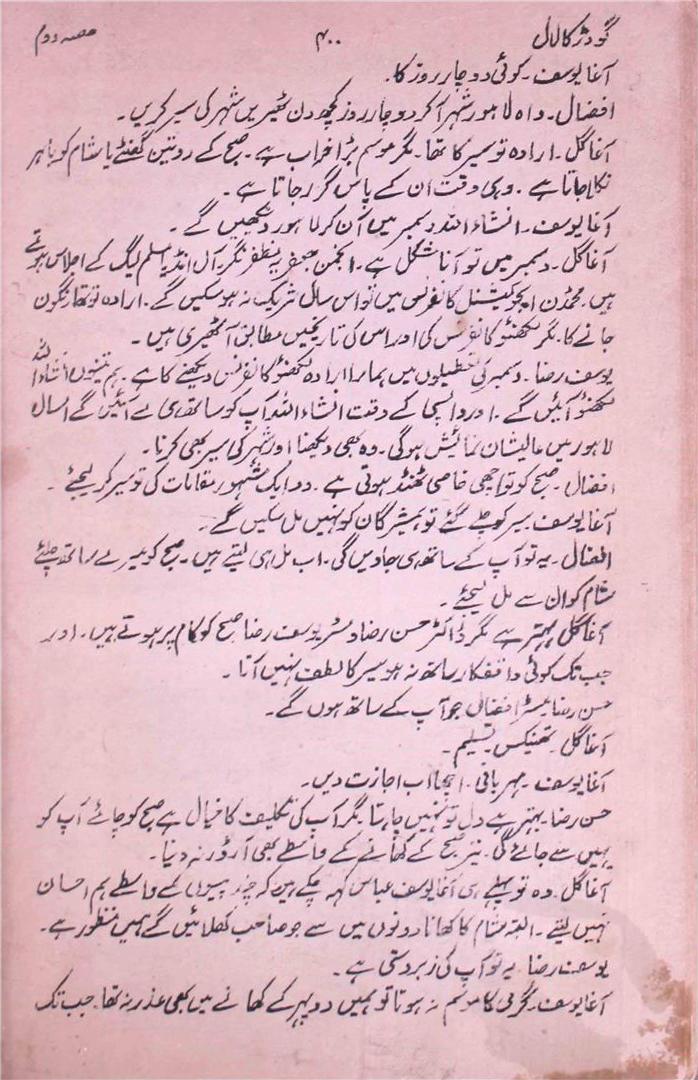 گودڑ کا لال ۴۰۰ حصہ دوم
آغا یوسف۔ کوئی دو چار روز کا۔
افضال۔ واہ لاہور شہر آکر دو چار روز کچھ دن ٹھیریں شہر کی سیر کریں۔
آغا گل۔ ارادہ تو سیر کا تھا۔ مگر موسم بڑا خراب ہے۔ صبح کے دو تین گھنٹے یا شام کو باہر
نکلا جاتا ہے۔ وہی وقت ان کے پاس گزر جاتا ہے۔
آغا یوسف۔ انشاء اللہ دسمبر میں آن کر لاہور دیکھیں گے۔
آغا گل۔ دسمبر میں تو آنا مشکل ہے۔ انجمن جعفریہ مظفر نگر۔ آل انڈیا مسلم لیگ کے اجلاس ہوتے
ہیں۔ محمڈن ایجوکیشنل کانفرنس میں تو اس سال شریک نہ ہو سکیں گے۔ ارادہ تو تھا رنگون
جانے کا۔ مگر لکھنؤ کانفرنس کی اور اس کی تاریخیں مطابق آ ٹھیری ہیں۔
یوسف رضا۔ دسمبر کی تعطیلوں میں ہمارا ارادہ لکھنؤ کانفرنس دیکھنے کا ہے۔ ہم تینوں انشاء اللہ
لکھنؤ آئیں گے۔ اور واپسی کے وقت انشاء اللہ آپ کو ساتھ ہی لے آئیں گے امسال
لاہور میں عالیشان نمائش ہوگی۔ وہ بھی دیکھنا اور شہر کی سیر بھی کرنا۔
افضال۔ صبح کو تو اچھی خاصی ٹھنڈ ہوتی ہے۔ دو ایک مشہور مقامات کی تو سیر کر لیجئے۔
آغا یوسف۔ سیر کو چلے گئے تو ہمشیرگان کو نہیں مل سکیں گے۔
افضال۔ یہ تو آپ کے ساتھ ہی جاویں گی۔ اب مل ہی لیتے ہیں۔ صبح کو میرے ساتھ چلئے
شام کو ان سے مل لیجئے۔
آغا گل بہتر ہے مگر ڈاکٹر حسن رضا و مسٹر یوسف رضا صبح کو کام پر ہوتے ہیں۔ اور
جب تک کوئی واقفکار ساتھ نہ ہو سیر کا لطف نہیں آتا۔
حسن رضا۔ مسٹر افضال جو آپ کے ساتھ ہوں گے۔
آغا گل۔ تھینکس۔ تسلیم۔
آغا یوسف۔ مہربانی۔ اچھا اب اجازت دیں۔
حسن رضا۔ بہتر ہے دل تو نہیں چاہتا۔ مگر آپ کی تکلیف کا خیال ہے صبح کو چائے آپ کو
یہیں سے جائے گی۔ نیز صبح کے کھانے کے واسطے بھی آرڈر نہ دینا۔
آغا گل۔ وہ تو پہلے ہی آغا یوسف عباس کہہ چکے ہیں کہ چند پیسوں کے واسطے ہم احسان
نہیں لیتے۔ البتہ شام کا کھانا دونوں میں سے جو صاحب کھلائیں گے ہمیں منظور ہے۔
یوسف رضا۔ یہ تو آپ کی زبردستی ہے۔
آغا یوسف۔ گرمی کا موسم نہ ہوتا تو ہمیں دوپہر کے کھانے میں بھی عذر نہ تھا۔ جب تک